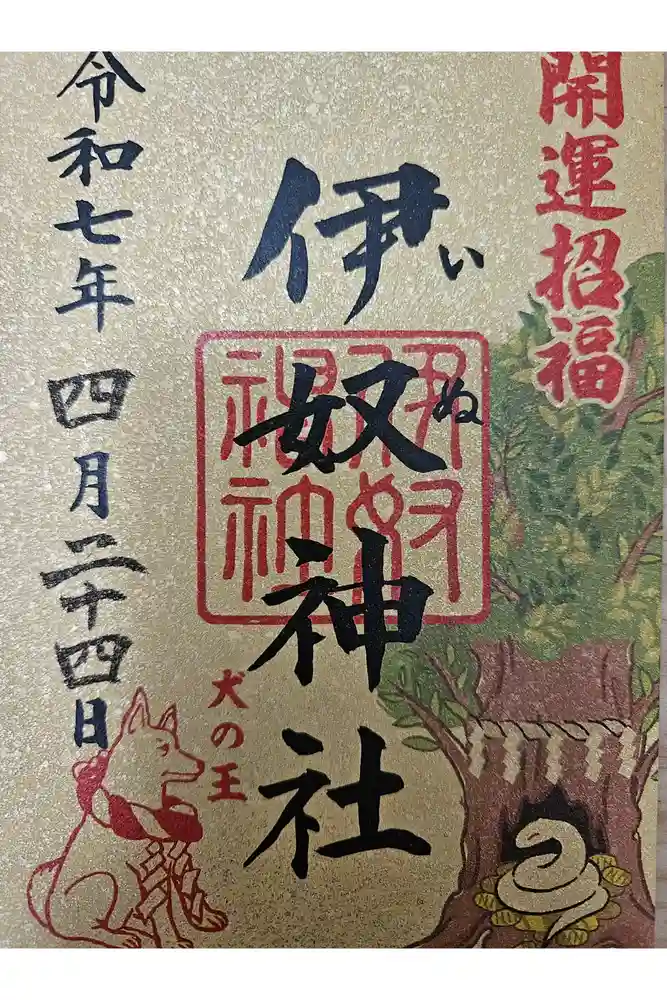 開運招福
伊奴神社
いぬ
伊奴
神社
犬の王
令和七年 四月二十四日